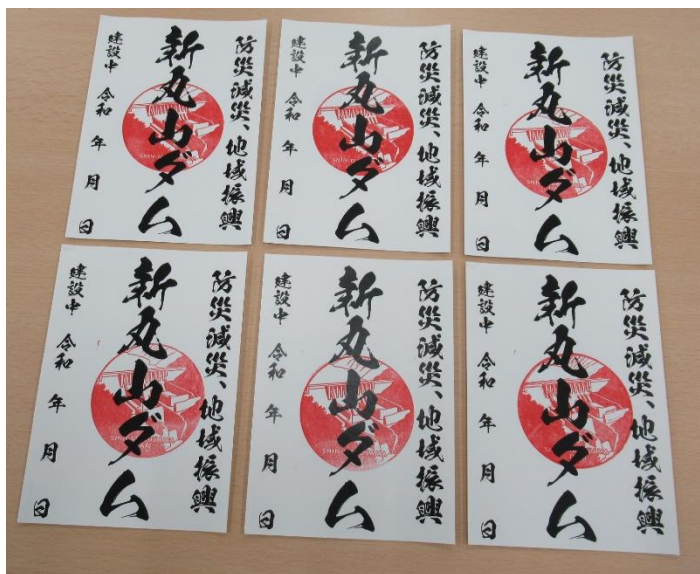 防災減災、地域振興
新丸山ダム
建設中 令和 年 月 日
防災減災、地域振興
新丸山ダム
建設中 令和 年 月 日
防災減災、地域振興
新丸山ダム
建設中 令和 年 月 日
防災減災、地域振興
新丸山ダム
建設中 令和 年 月 日
防災減災、地域振興
新丸山ダム
建設中 令和 年 月 日
防災減災、地域振興
新丸山ダム
建設中 令和 年 月 日